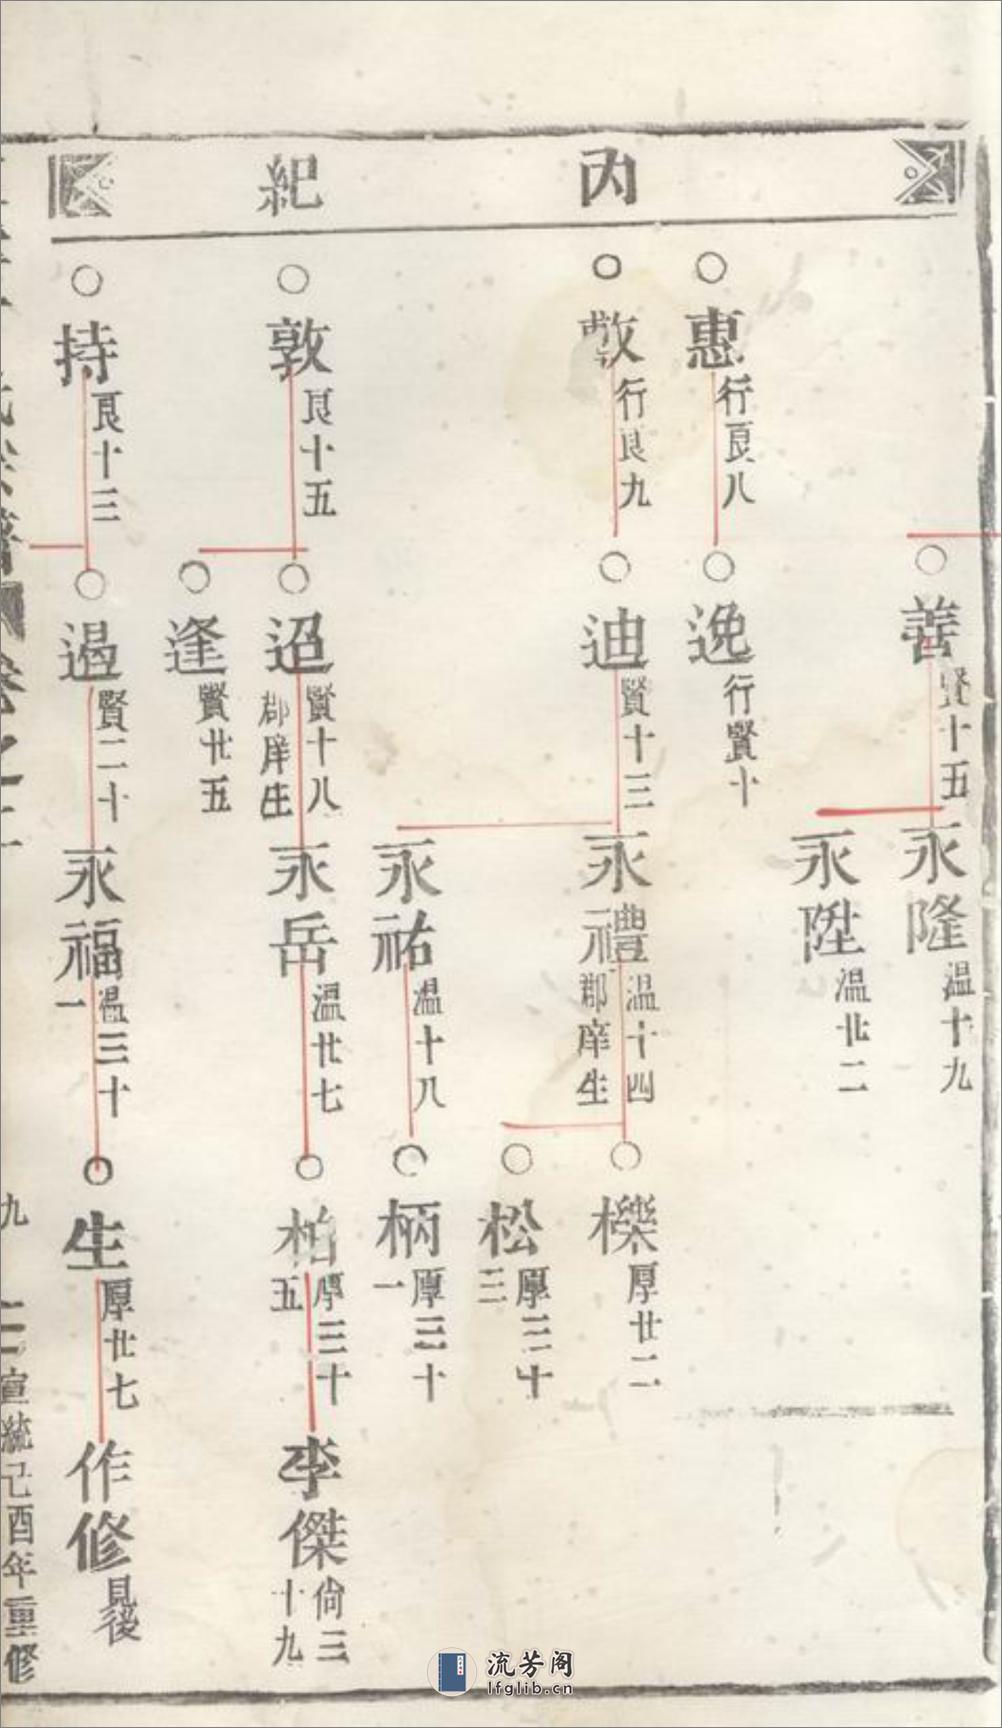 丙紀
善
賢十五
永隆
温十九
永陞
温廿二
惠
行良八
逸
行賢十
敷
行良九
迪
賢十三
永禮
温十四
郡庠生
櫟
厚廿二
松
厚三十
三
永祐
温十八
柄
厚三十
一
敦
良十五
迢
賢十八
郡庠生
永岳
温廿七
柏
厚三十
五
李傑
尙三
十九
逢
賢廿五
持
良十三
遏
賢二十
永福
温三十
一
生
厚廿七
作修
見後
卷之
九
宣統己酉年重修
流芳阁
lfglib.cn